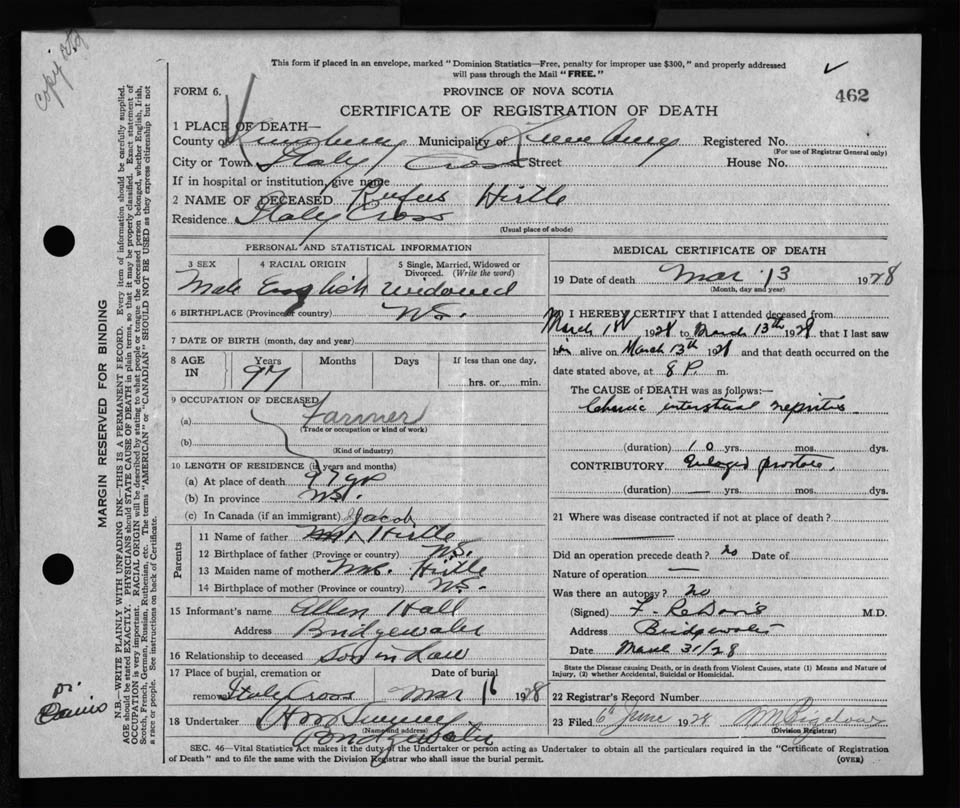 This form if placed in an envelope, marked "Dominion Statistics—Free, penalty for improper use $300," and properly addressed
will pass through the Mail "FREE."
FORM 6.
PROVINCE OF NOVA SCOTIA
462
CERTIFICATE OF REGISTRATION OF DEATH
1 PLACE OF DEATH—
County of Lunenburg Municipality of Lunenburg Registered No.
(For use of Registrar General only)
City or Town Italy Cross Street House No.
If in hospital or institution, give name
2 NAME OF DECEASED Rufus Hirtle
Residence Italy Cross
(Usual place of abode)
PERSONAL AND STATISTICAL INFORMATION
3 SEX 4 RACIAL ORIGIN 5 Single, Married, Widowed or Divorced. (Write the word)
Male English Widowed
6 BIRTHPLACE (Province or country) N.S.
7 DATE OF BIRTH (month, day and year)
8 AGE IN Years Months Days If less than one day,
97 hrs. or min.
9 OCCUPATION OF DECEASED
(a) Farmer
(Trade or occupation or kind of work)
(b)
(Kind of industry)
10 LENGTH OF RESIDENCE (in years and months)
(a) At place of death 97 yrs
(b) In province N.S.
(c) In Canada (if an immigrant) Jacob
Parents
11 Name of father Mr. Hirtle
12 Birthplace of father (Province or country) N.S.
13 Maiden name of mother Mrs. Hirtle
14 Birthplace of mother (Province or country) N.S.
15 Informant's name Allen Hall
Address Bridgewater
16 Relationship to deceased Son in Law
17 Place of burial, cremation or Date of burial
removal Italy Cross Mar 16 1928
18 Undertaker
(Name and address)
Bridgewater
MEDICAL CERTIFICATE OF DEATH
19 Date of death Mar 13 1928
(Month, day and year)
20 I HEREBY CERTIFY that I attended deceased from
March 1st 1928 to March 13th 1928 that I last saw
him alive on March 13th 1928 and that death occurred on the
date stated above, at 8 P. m.
The CAUSE of DEATH was as follows:—
Chronic interstitial nephritis
(duration) 10 yrs. mos. dys.
CONTRIBUTORY Enlarged prostate.
(duration) — yrs. mos. dys.
21 Where was disease contracted if not at place of death?
Did an operation precede death? no Date of
Nature of operation —
Was there an autopsy? no
(Signed) F. Davis M.D.
Address Bridgewater
Date March 31/28
State the Disease causing Death, or in death from Violent Causes, state (1) Means and Nature of
Injury, (2) whether Accidental, Suicidal or Homicidal.
22 Registrar's Record Number
23 Filed 6th June 1928 Bigelow
(Division Registrar)
SEC. 46—Vital Statistics Act makes it the duty of the Undertaker or person acting as Undertaker to obtain all the particulars required in the "Certificate of Registration
of Death" and to file the same with the Division Registrar who shall issue the burial permit.
(OVER)
MARGIN RESERVED FOR BINDING
N.B. WRITE PLAINLY WITH UNFADING INK—THIS IS A PERMANENT RECORD. Every item of information should be carefully supplied.
AGE should be stated EXACTLY. PHYSICIANS should STATE CAUSE OF DEATH in plain terms, so that it may be properly classified. Exact statement of
OCCUPATION is very important. RACIAL ORIGIN will be described by stating to what people or tongue the deceased person belonged, whether English, Irish,
Scotch, French, German, Russian, Ruthenian, etc. The terms "AMERICAN" or "CANADIAN" SHOULD NOT BE USED as they express citizenship but not
a race or people. See instructions on back of Certificate.
Dr. Davis
copy